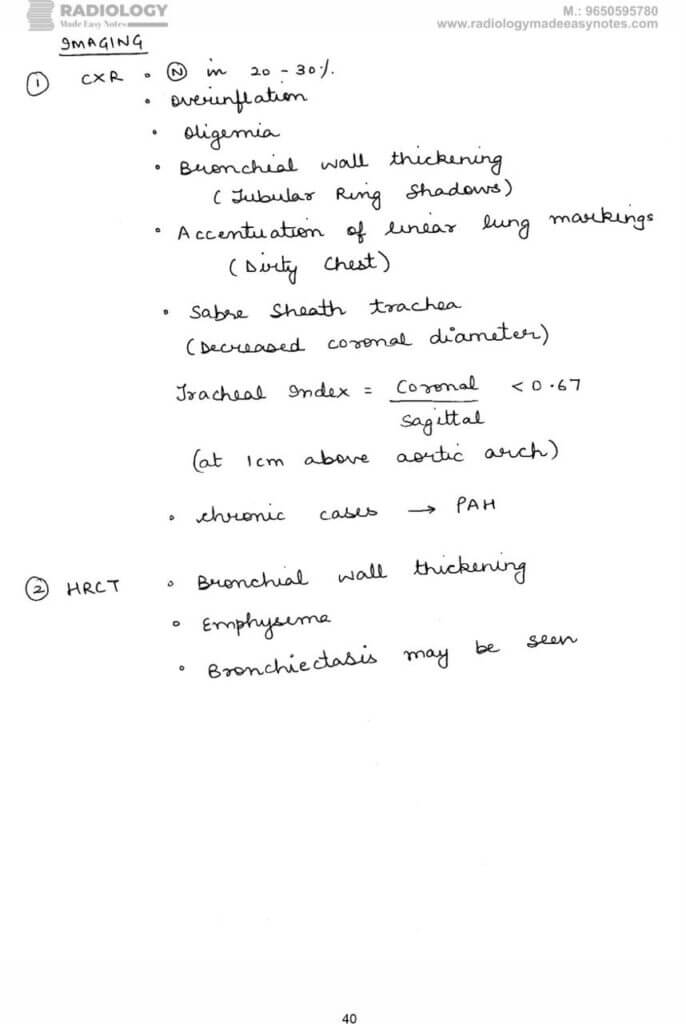 RADIOLOGY
Made Easy Notes
M.: 9650595780
www.radiologymadeeasynotes.com
IMAGING
① CXR • Ⓝ in 20 - 30%.
• Overinflation
• Oligemia
• Bronchial wall thickening
(Tubular Ring Shadows)
• Accentuation of linear lung markings
(Dirty Chest)
• Sabre Sheath trachea
(Decreased coronal diameter)
Tracheal Index = Coronal < 0.67
Sagittal
(at 1cm above aortic arch)
• chronic cases → PAH
② HRCT • Bronchial wall thickening
• Emphysema
• Bronchiectasis may be seen
40